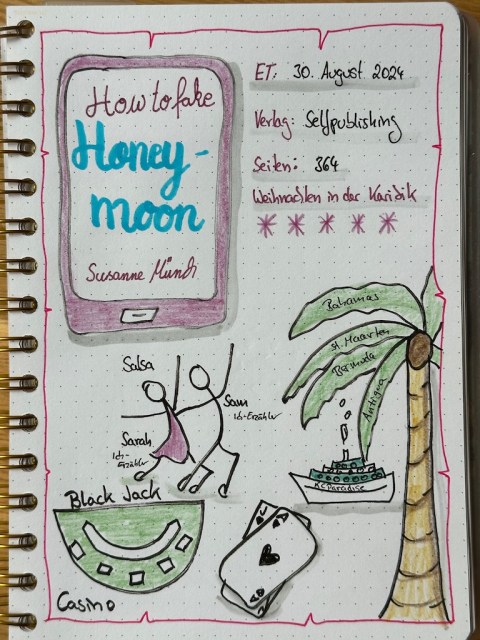 How to fake
Honey-
moon
Susanne Münch
ET: 30. August 2024
Verlag: Selfpublishing
Seiten: 364
Weihnachten in der Karibik
Bahamas
St. Maarten
Bermuda
Antigua
Salsa
Sam
Ich-Erzähler
Sarah
Ich-
Erzähler
KC Paradise
Black Jack
Casino
J
A